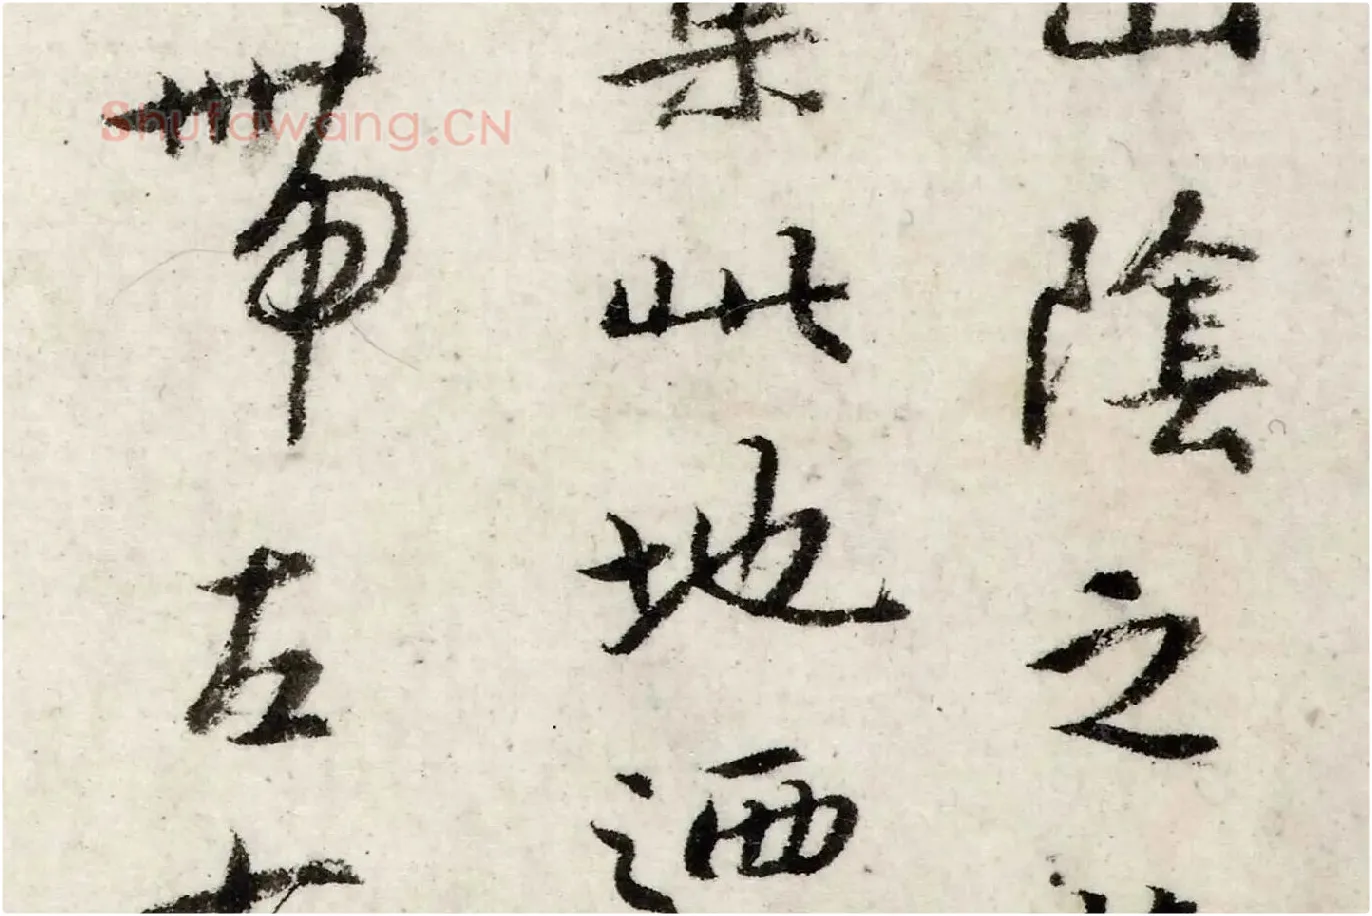 山陰之
集此地迺
帶左
Shufawang.CN